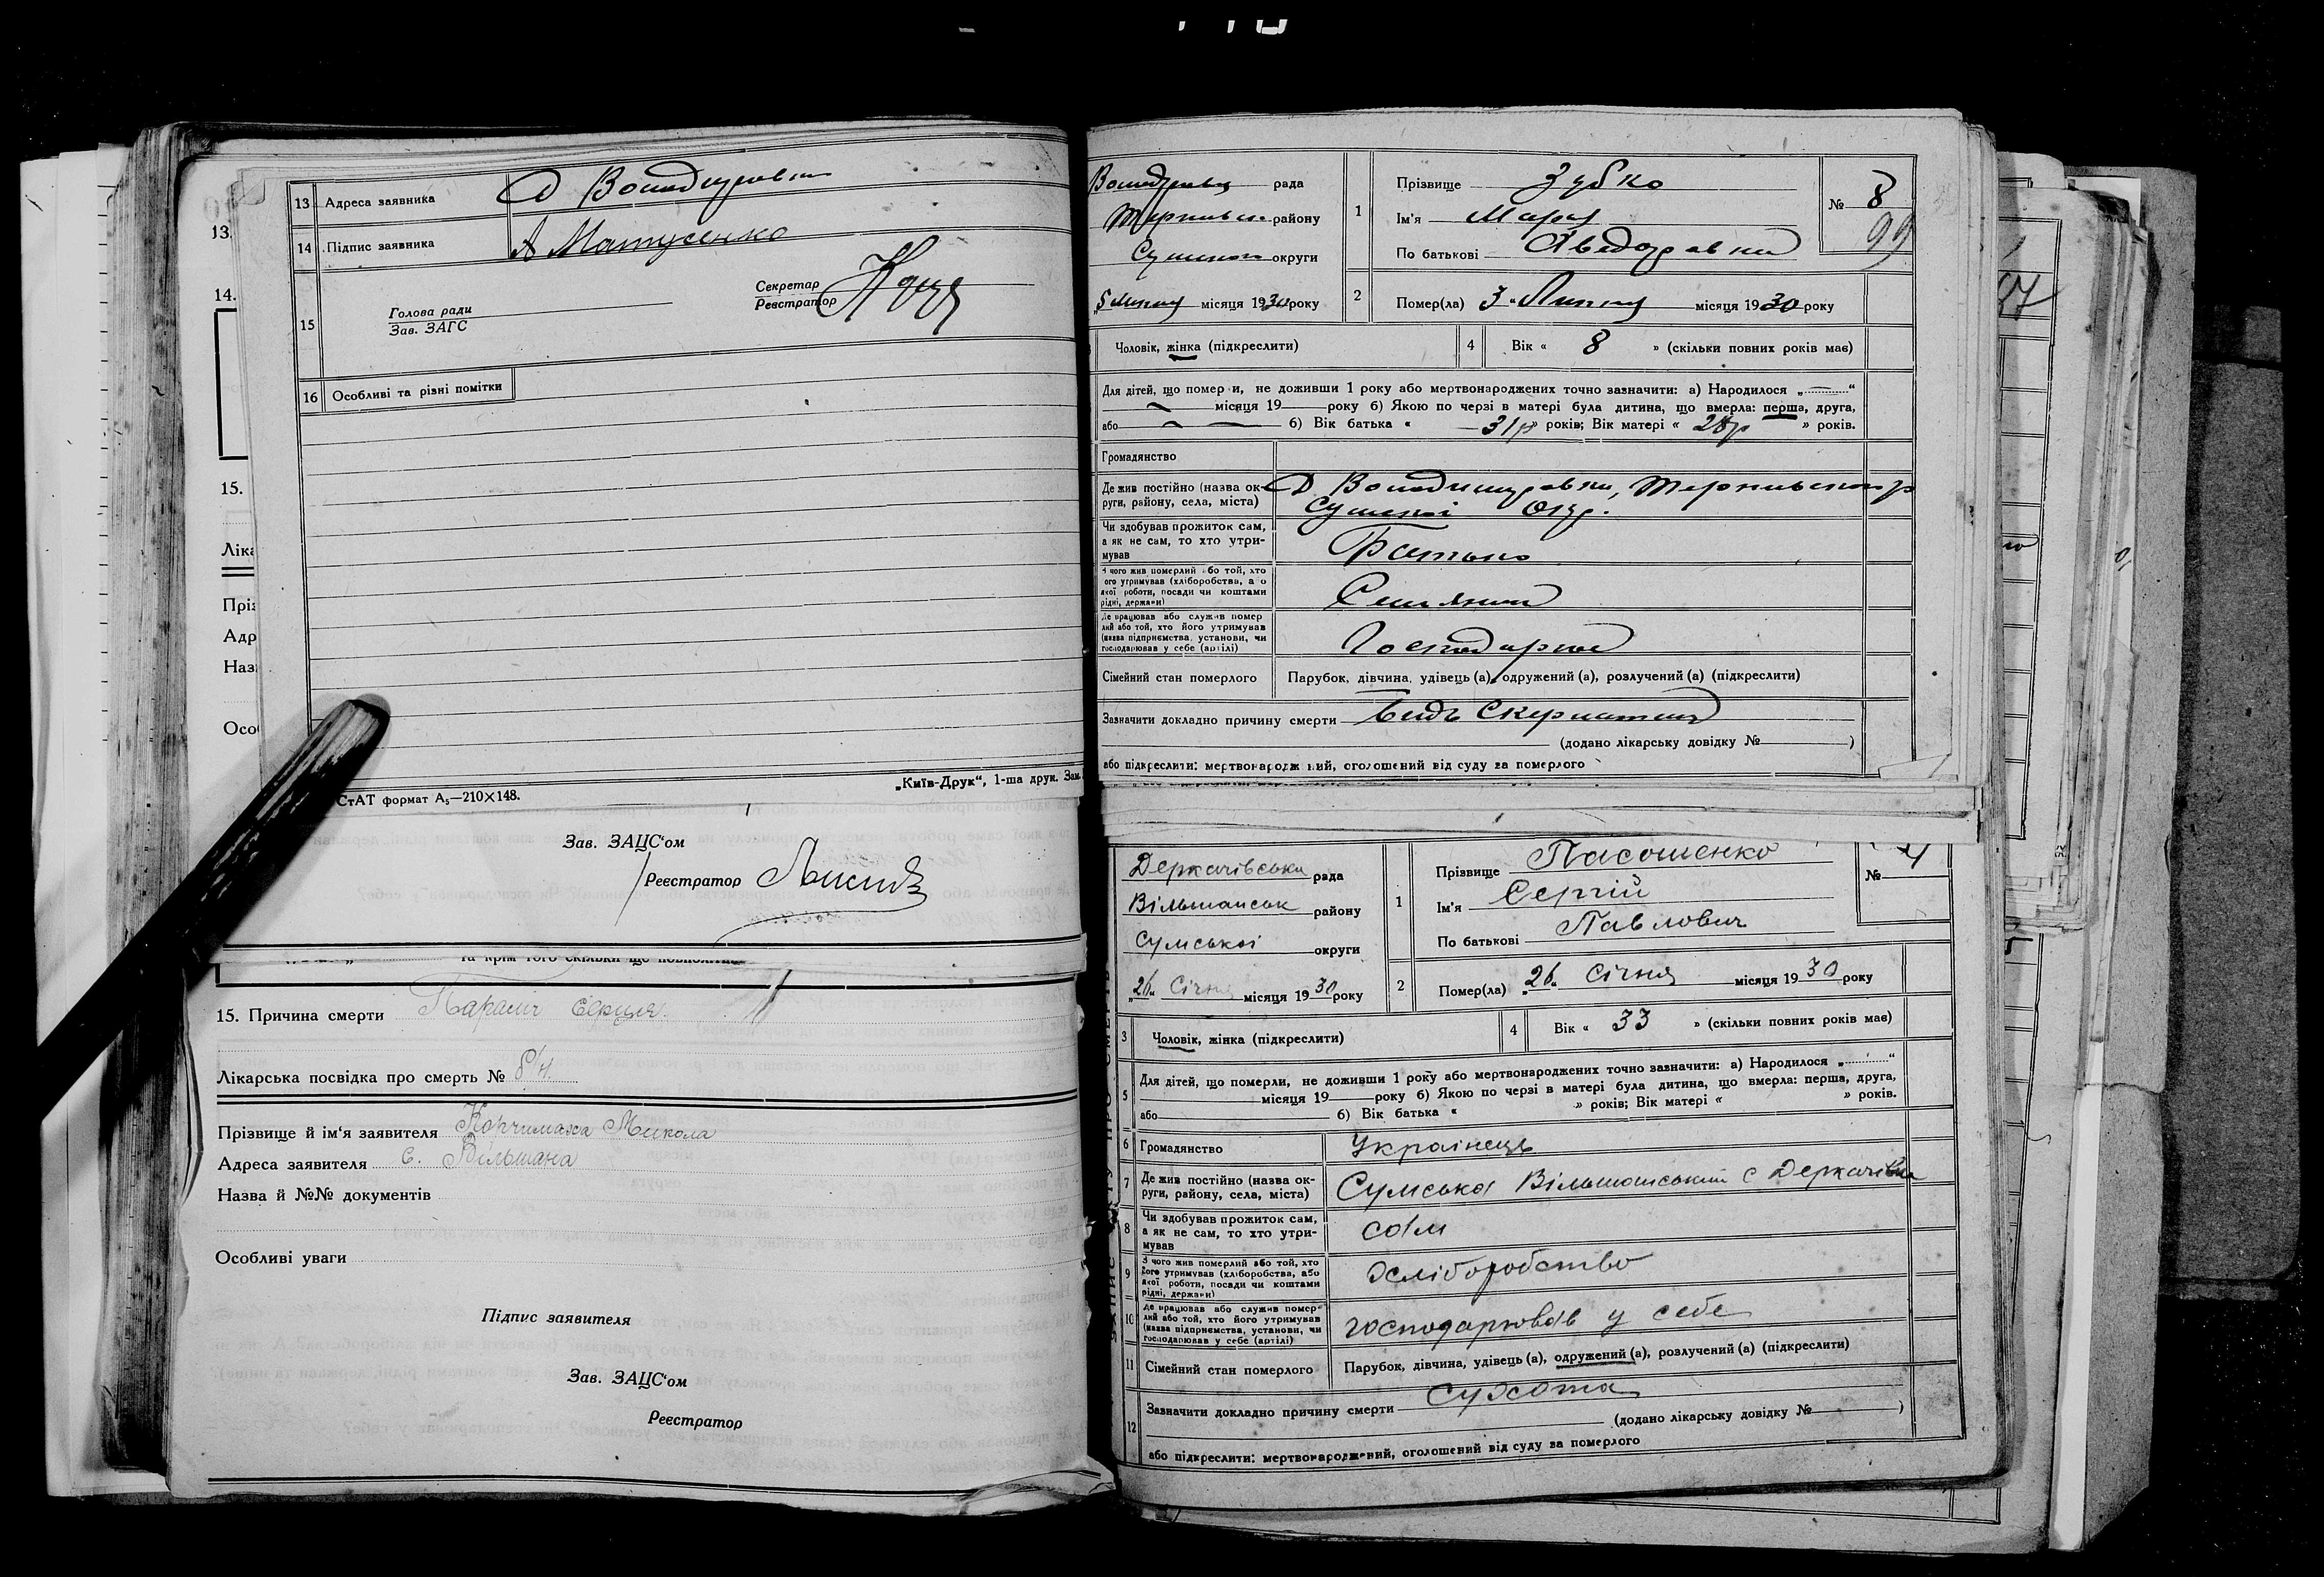 13 Адреса заявника Д Володимировка
14 Підпис заявника А Матусенко
15
Голова ради
Зав. ЗАГС
Секретар
Реєстратор
16 Особливі та різні помітки
СтАТ формат А₅—210×148.
„Київ-Друк“, 1-ша друк. Зам.
13.
14.
15.
Ліка
Пріз
Адр
Наз
Осо
Зав. ЗАЦС'ом
Реєстратор
15. Причина смерти Параліч серця
Лікарська посвідка про смерть № б/н.
Прізвище й ім'я заявителя Микола
Адреса заявителя с. Вільшана
Назва й №№ документів
Особливі уваги
Підпис заявителя
Зав. ЗАЦС'ом
Реєстратор
рада
району
Сумської округи
„5 Липня місяця 1930 року
1
Прізвище Зубко
Ім'я Марія
По батькові
№ 8
99
2 Помер(ла) 3 „ Липня місяця 1930 року
Чоловік, жінка (підкреслити)
4 Вік « 8 » (скільки повних років має)
Для дітей, що померли, не доживши 1 року або мертвонароджених точно зазначити: а) Народилося „ “
місяця 19 року б) Якою по черзі в матері була дитина, що вмерла: перша, друга,
або б) Вік батька « 31р » років; Вік матері « 28р » років.
Громадянство
Де жив постійно (назва ок-
руги, району, села, міста)
Д Володимировки,
Сумської Окр.
Чи здобував прожиток сам,
а як не сам, то хто утри-
мував
Батько
З чого жив померлий або той, хто
його утримував (хліборобства, або
якої роботи, посади чи коштами
рідні, держави)
Селянин
Де працював або служив помер
лий або той, хто його утримував
(назва підприємства, установи, чи
господарював у себе (артілі)
Сімейний стан померлого
Парубок, дівчина, удівець (а), одружений (а), розлучений (а) (підкреслити)
Зазначити докладно причину смерти Видь Скерлатени
(додано лікарську довідку № )
або підкреслити: мертвонароджений, оголошений від суду за померлого
Деркачівська рада
Вільшанськ району
Сумської округи
„26“ Січня місяця 1930 року
1
Прізвище Пасошенко
Ім'я Сергій
По батькові Павлович
№ 4
2 Помер(ла) „26“ Січня місяця 1930 року
3 Чоловік, жінка (підкреслити)
4 Вік « 33 » (скільки повних років має)
5
Для дітей, що померли, не доживши 1 року або мертвонароджених точно зазначити: а) Народилося „ “
місяця 19 року б) Якою по черзі в матері була дитина, що вмерла: перша, друга,
або б) Вік батька « » років; Вік матері « » років.
6 Громадянство Українець
7 Де жив постійно (назва ок-
руги, району, села, міста)
Сумська Вільшанський с Деркачівка
8 Чи здобував прожиток сам,
а як не сам, то хто утри-
мував
сам
9 З чого жив померлий або той, хто
його утримував (хліборобства, або
якої роботи, посади чи коштами
рідні, держави)
хліборобство
10 Де працював або служив помер
лий або той, хто його утримував
(назва підприємства, установи, чи
господарював у себе (артілі)
господарював у себе
11 Сімейний стан померлого
Парубок, дівчина, удівець (а), одружений (а), розлучений (а) (підкреслити)
12
Зазначити докладно причину смерти сухота
(додано лікарську довідку № )
або підкреслити: мертвонароджений, оголошений від суду за померлого